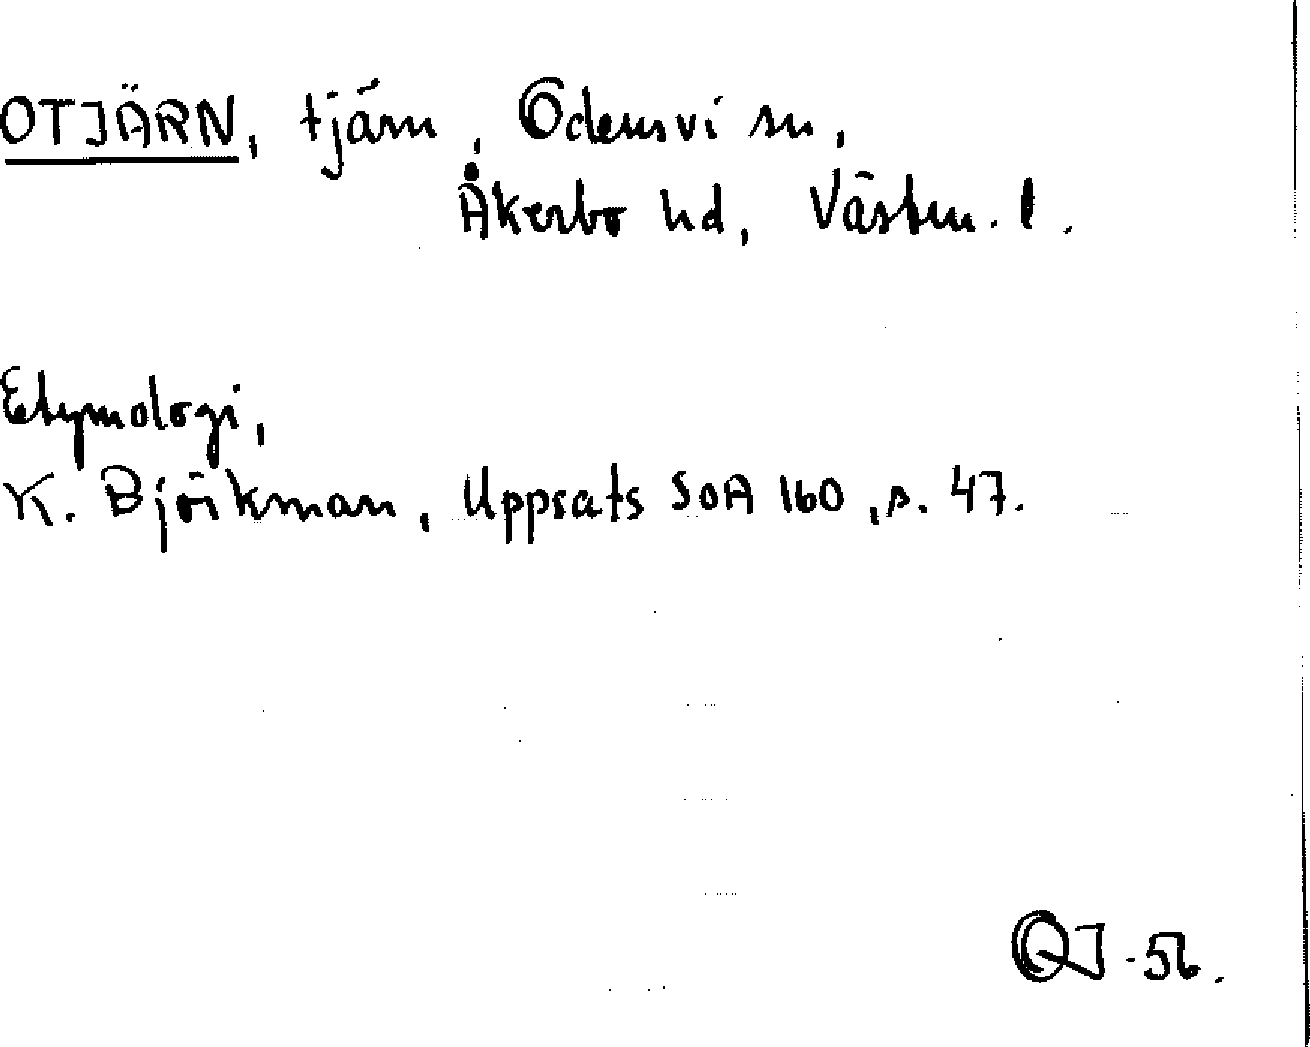 OTJÄRN, tjärn, Odensvi sn,
Åkerbo hd, Västm. l.
Etymologi,
K. Björkman, Uppsats SOA 160, s. 47.
OJ -56.